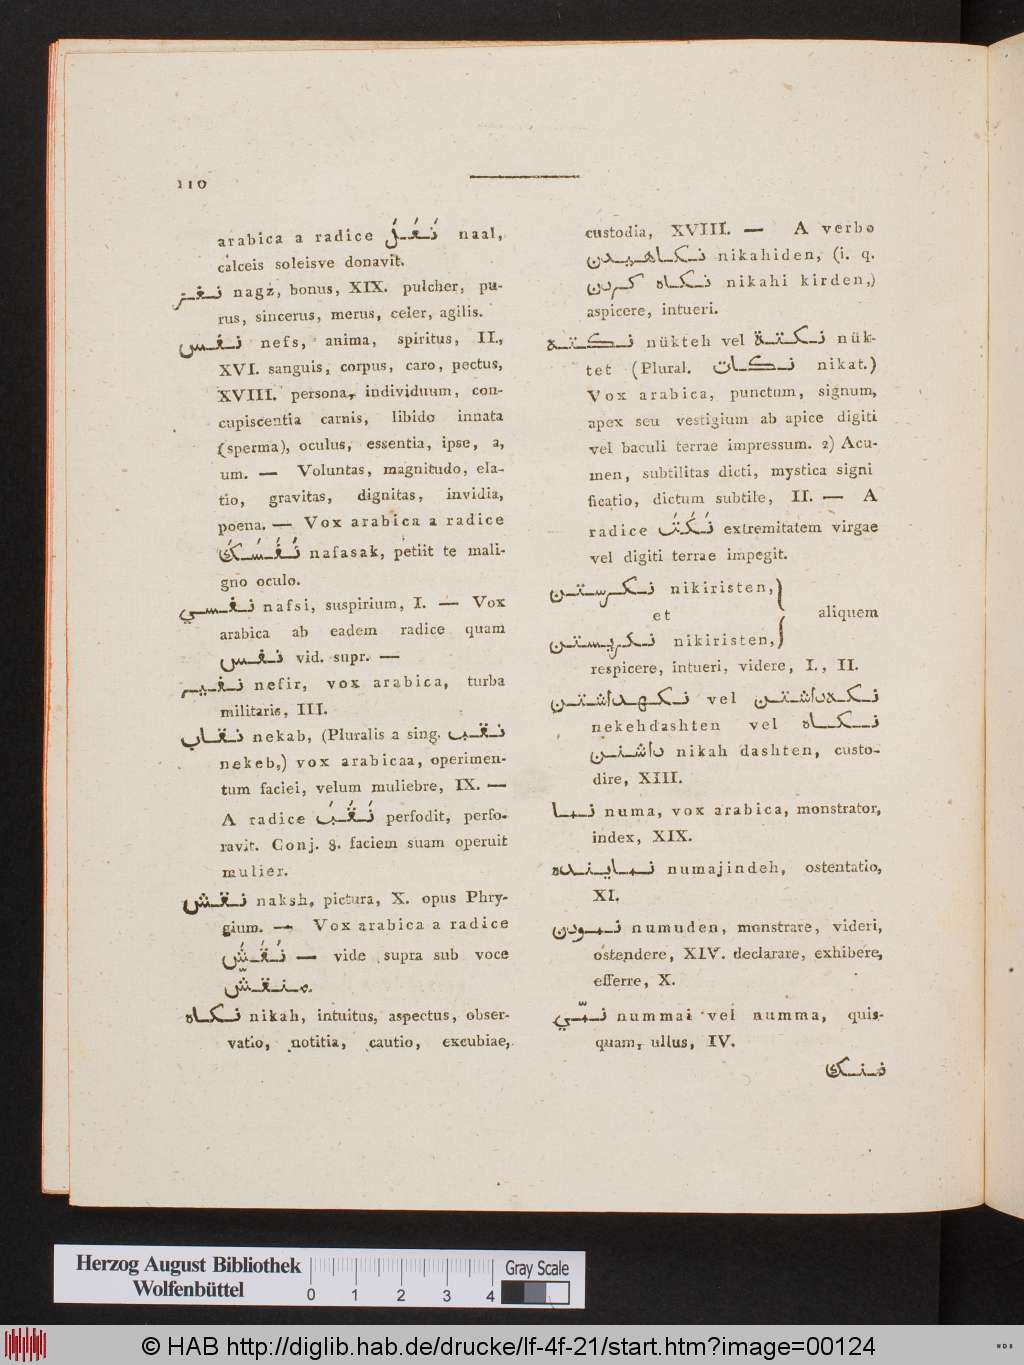 110
arabica a radice نَعَلَ naal,
calceis soleisve donavit.
نغز nagz, bonus, XIX. pulcher, pu-
rus, sincerus, merus, celer, agilis.
نفس nefs, anima, spiritus, II.,
XVI. sanguis, corpus, caro, pectus,
XVIII. persona, individuum, con-
cupiscentia carnis, libido innata
(sperma), oculus, essentia, ipse, a,
um. — Voluntas, magnitudo, ela-
tio, gravitas, dignitas, invidia,
poena. — Vox arabica a radice
نَفَسَكَ nafasak, petiit te mali-
gno oculo.
نفسي nafsi, suspirium, I. — Vox
arabica ab eadem radice quam
نفس vid. supr. —
نفير nefir, vox arabica, turba
militaris, III.
نقاب nekab, (Pluralis a sing. نقب
nekeb,) vox arabicaa, operimen-
tum faciei, velum muliebre, IX. —
A radice نَقَبَ perfodit, perfo-
ravit. Conj. 8. faciem suam operuit
mulier.
نقش naksh, pictura, X. opus Phry-
gium. — Vox arabica a radice
نَقَشَ — vide supra sub voce
منقش.
نكاه nikah, intuitus, aspectus, obser-
vatio, notitia, cautio, excubiae,
custodia, XVIII. — A verbo
نكاهيدن nikahiden, (i. q.
نكاه كردن nikahi kirden,)
aspicere, intueri.
نكته nükteh vel نكتة nük-
tet (Plural. نكات nikat.)
Vox arabica, punctum, signum,
apex seu vestigium ab apice digiti
vel baculi terrae impressum. 2) Acu-
men, subtilitas dicti, mystica signi
ficatio, dictum subtile, II. — A
radice نَكَتَ extremitatem virgae
vel digiti terrae impegit.
نكرستن nikiristen,
et aliquem
نكريستن nikiristen,
respicere, intueri, videre, I., II.
نكهداشتن vel نكه داشتن
nekehdashten vel نكاه
داشتن nikah dashten, custo-
dire, XIII.
نما numa, vox arabica, monstrator,
index, XIX.
نماينده numajindeh, ostentatio,
XI.
نمودن numuden, monstrare, videri,
ostendere, XIV. declarare, exhibere,
efferre, X.
نمّي nummai vel numma, quis-
quam, ullus, IV.
Herzog August Bibliothek
Wolfenbüttel
0 1 2 3 4
Gray Scale
© HAB http://diglib.hab.de/drucke/lf-4f-21/start.htm?image=00124